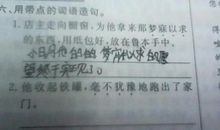 六、用带点的词语造句。
1.店主走向橱窗，为他拿来那梦寐以求
的东西，用纸包好，放在鲁本手中。
梦寐以求的愿
望终于实现了。
2.他收起铁罐，毫不犹豫地跑出了家
门。